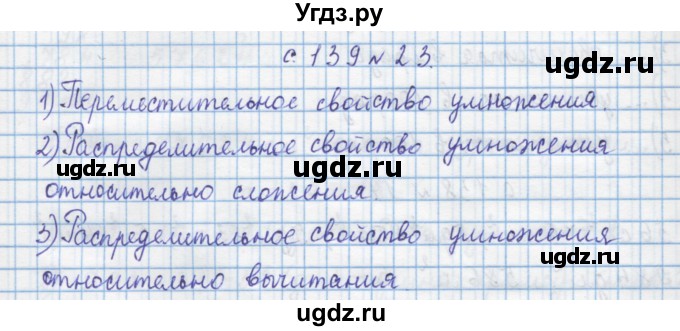 Угдз.ру
с. 139 № 23.
ugdz.ru
1) Переместительное свойство умножения.
ugdz.ru
2) Распределительное свойство умножения
ugdz.ru ugdz.ru
относительно сложения.
ugdz.ru
3) Распределительное свойство умножения
ugdz.ru ugdz.ru
относительно вычитания.
ugdz.ru